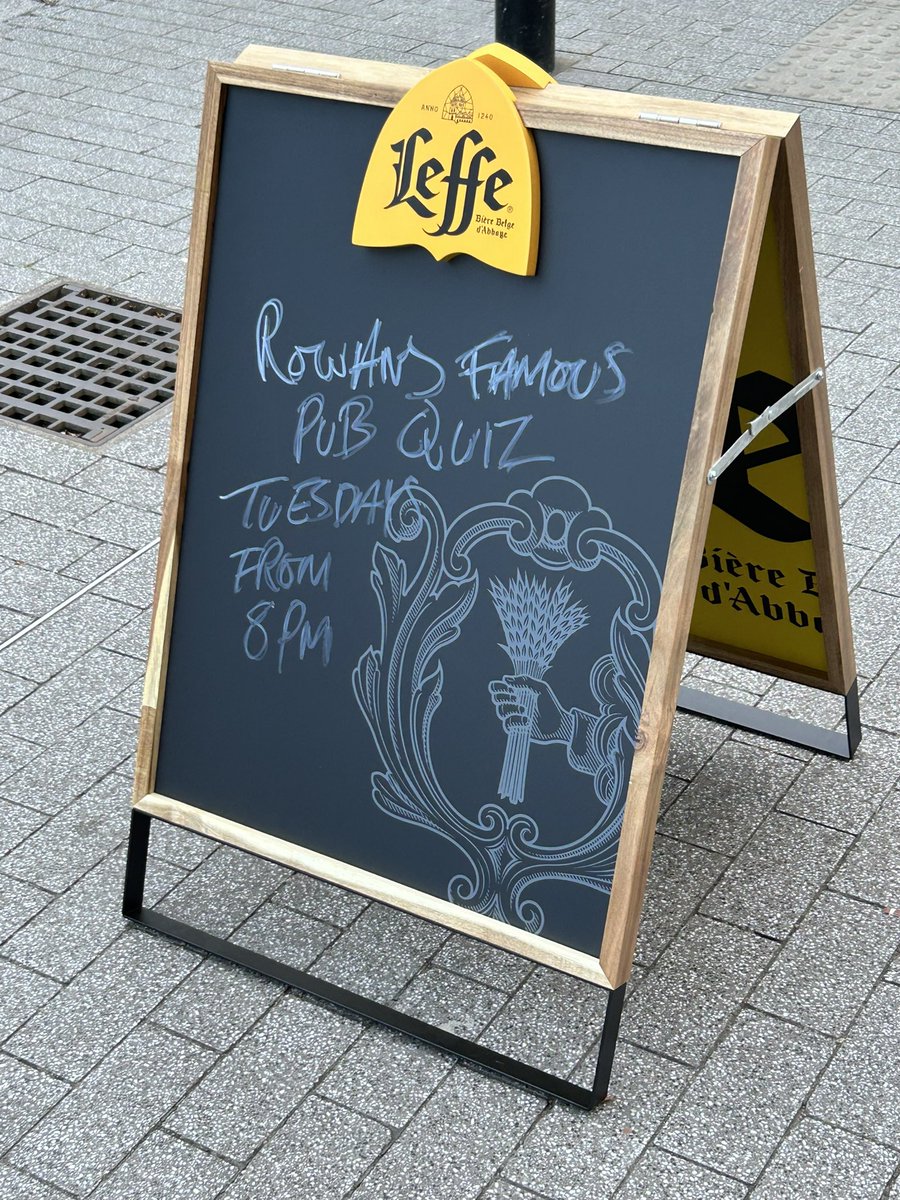 ANNO 1240
Leffe®
Bière Belge
d'Abbaye
ROWANS FAMOUS
PUB QUIZ
TUESDAYS
FROM
8PM
Bière B
d'Abb